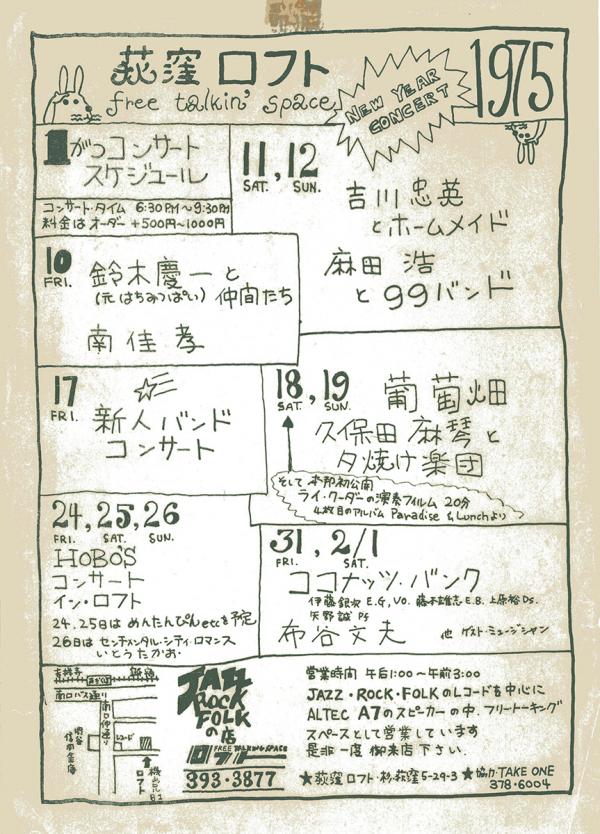 荻窪 ロフト
free talkin' space
NEW YEAR
CONCERT
1975
1がつコンサート
スケジュール
コンサート・タイム 6:30PM〜9:30PM
料金はオーダー +500円〜1000円
11, 12
SAT. SUN.
吉川忠英
とホームメイド
麻田 浩
と 99バンド
10
FRI.
鈴木慶一と
(元はちみつぱい) 仲間たち
南佳孝
17
FRI.
新人バンド
コンサート
18, 19
SAT. SUN.
葡萄畑
久保田麻琴と
夕焼け楽団
そして 本邦初公開
ライ・クーダーの演奏フィルム 20分
4枚目のアルバム Paradise & Lunchより
24, 25, 26
FRI. SAT. SUN.
HOBO'S
コンサート
イン・ロフト
24.25日は めんたんぴんetcを予定
26日は センチメンタル・シティ・ロマンス
いとうたかお・
31, 2/1
FRI. SAT.
ココナッツ・バンク
伊藤銀次 E.G,VO. 藤本雄志 E.B. 上原裕 Ds.
矢野誠 P5
布谷文夫 他 ゲスト・ミュージシャン
吉祥寺
新宿
南口バス通り
南口仲通り
信用金庫
レコード
ロフト
JAZZ
ROCK
FOLK
の店
ロフト
FREE TALKING SPACE
393・3877
営業時間 午后1:00〜午前3:00
JAZZ・ROCK・FOLKのレコードを中心に
ALTEC A7のスピーカーの中、フリートーキング
スペースとして営業しています
是非一度御来店下さい.
★荻窪ロフト・杉.荻窪5-29-3 ★協力・TAKE ONE
378・6004